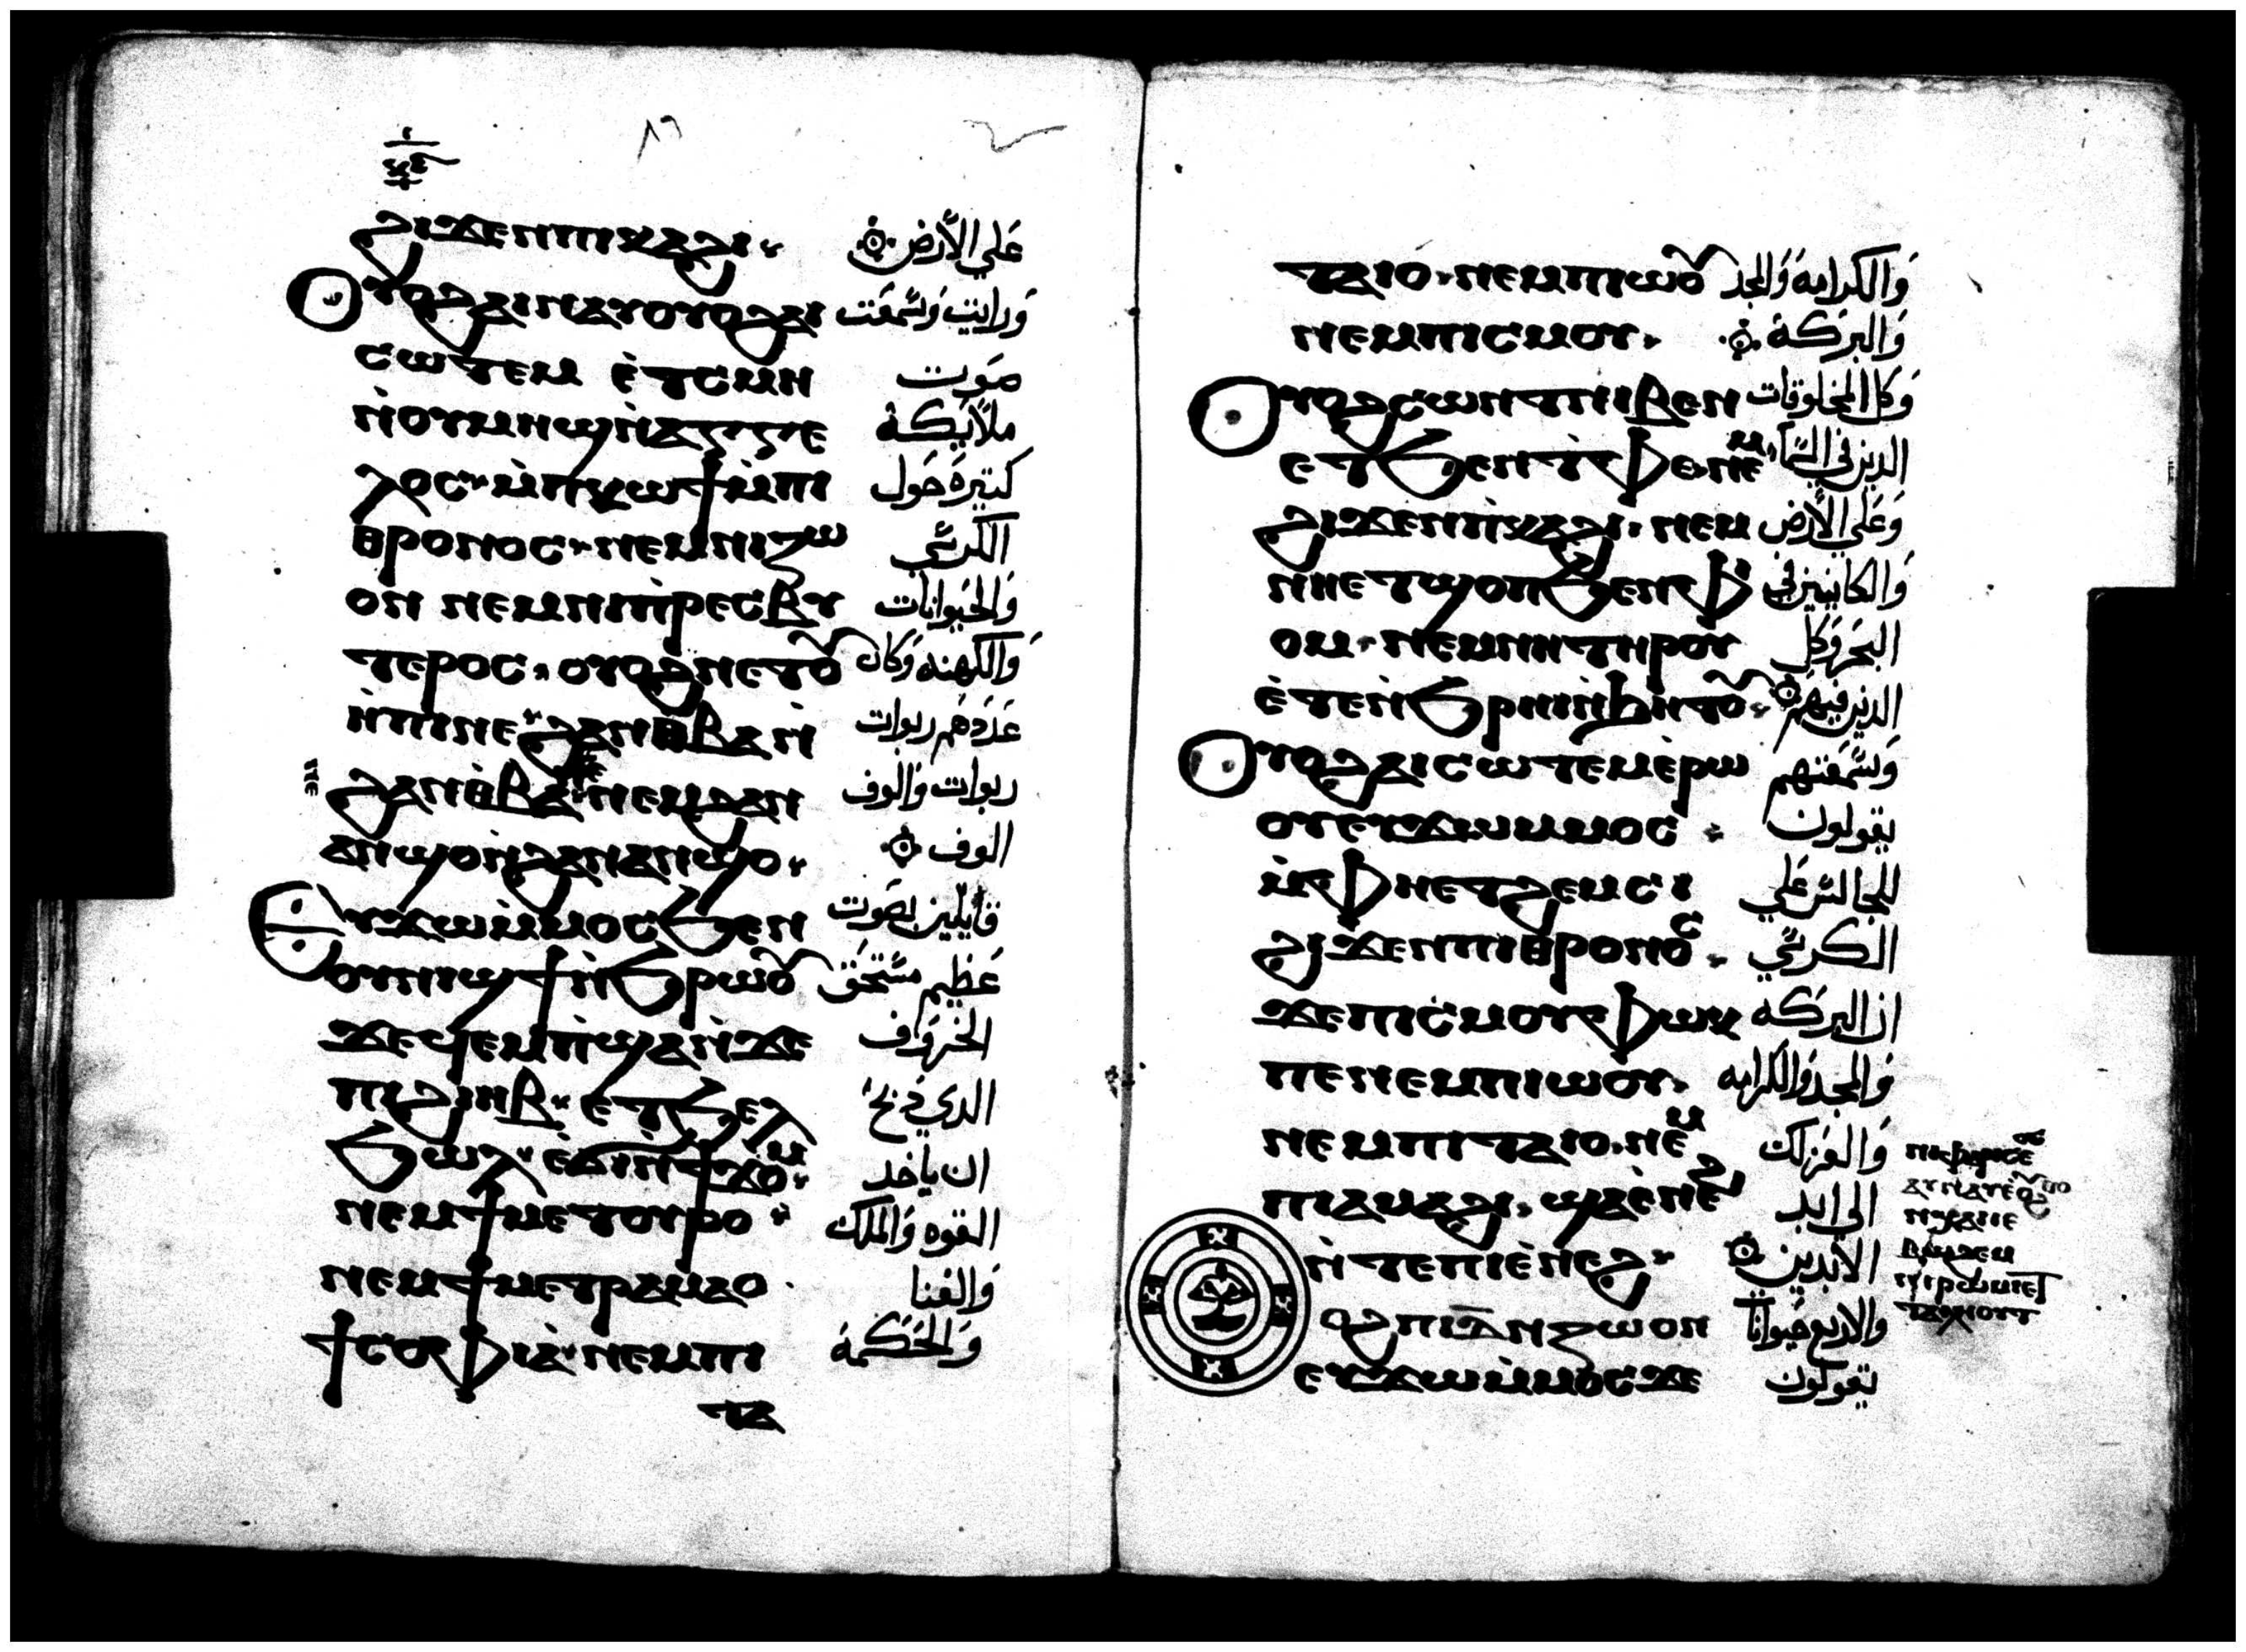 ϩⲓϫⲉⲛⲡⲓⲕⲁϩⲓ على الأرض
ⲟⲩⲟϩⲁⲓⲛⲁⲩⲟⲩⲟϩⲁⲓ ورايت وسمعت
ⲥⲱⲧⲉⲙ ⲉ̀ⲧⲥⲙⲏ صوت
ⲛ̀ⲟⲩⲙⲏϣⲛ̀ⲁⲅⲅⲉ ملايكة
ⲗⲟⲥ ⲙ̀ⲡⲕⲱϯⲙ̀ⲡⲓ كتيرة حول
ⲑⲣⲟⲛⲟⲥ ⲛⲉⲙⲛⲓⲍⲱ الكرسي
ⲟⲛ ⲛⲉⲙⲛⲓⲡ̀ⲣⲉⲥⲃⲩ والحيوانات
ⲧⲉⲣⲟⲥ ⲟⲩⲟϩⲛⲉⲧⲟⲩ والكهنه وكان
ϩⲁⲛⲑⲃⲁⲛ̀ عددهم ربوات
ϩⲁⲛⲑ̀ⲃⲁ ⲛⲉⲙϩⲁⲛ ربوات والوف
ⲁⲛϣⲟⲛ̀ϩⲁⲛⲁⲛϣⲟ الوف
ⲉⲩϫⲱⲙ̀ⲙⲟⲥϧⲉⲛ قايلين بصوت
ⲟⲩⲛⲓϣϯⲛ̀ϧⲣⲱⲟⲩ عظيم مستحق
ϫⲉϥⲉⲙⲡ̀ϣⲁⲛ̀ϫⲉ الخروف
ⲡⲓϩⲓⲏⲃ ⲉⲧϧⲉⲗ الدي دبح
ϧⲱⲗ ⲉ̀ϭⲓⲛ̀ϯϫⲟⲙ ان ياخد
ⲛⲉⲙϯⲙⲉⲧⲟⲩⲣⲟ القوه والملك
ⲛⲉⲙϯⲙⲉⲧⲣⲁⲙⲁⲟ والغنا
ϯⲥⲟⲫⲓⲁ̀ ⲛⲉⲙⲡⲓ والحكمة
ⲧⲁ
ⲧⲁⲓⲟ ⲛⲉⲙⲡⲓⲱⲟⲩ والكرامه والمجد
ⲛⲉⲙⲡⲓⲥⲙⲟⲩ والبركة
ⲟⲩⲟϩⲥⲱⲛⲧⲛⲓⲃⲉⲛ وكل المخلوقات
ⲉⲧϧⲉⲛⲧ̀ⲫⲉ ⲛⲉⲙ الدين في السما
ϩⲓϫⲉⲛⲡ̀ⲕⲁϩⲓ ⲛⲉⲙ وعلى الأرض
ⲛⲏⲉⲧϣⲟⲡϧⲉⲛⲫ والكاينين في
ⲟⲙ ⲛⲉⲙⲛⲏⲧⲏⲣⲟⲩ البحر وكل
ⲉ̀ⲧⲉⲛ̀ϧⲣⲏⲓⲛ̀ϧⲏⲧⲟⲩ الدين فيهم
ⲟⲩⲟϩⲁⲓⲥⲱⲧⲉⲙⲉ̀ⲣⲱ وسمعتهم
ⲟⲩⲉⲩϫⲱⲙⲙⲟⲥ يقولون
ⲙ̀ⲫⲏⲉⲧϩⲉⲙⲥⲓ للجالس علي
ϩⲓϫⲉⲛⲡⲓⲑⲣⲟⲛⲟⲥ الكرسي
ϫⲉⲡⲓⲥ̀ⲙⲟⲩⲫⲱⲕ ان البركه
ⲡⲉⲛⲉⲙⲡⲓⲱⲟⲩ والمجد والكرامه
ⲛⲉⲙⲡⲓⲧⲁⲓⲟ ⲛⲉⲙ والعز لك
ⲡⲓⲁⲙⲁϩⲓ ϣⲁⲉ̀ⲛⲉϩ الي ابد
ⲛ̀ⲧⲉⲡⲓⲉ̀ⲛⲉϩ الابدين
ⲟϩⲡⲓⲇ̅ⲛⲍⲱⲟⲛ والاربع حيوانات
ⲉⲩϫⲱⲙ̀ⲙⲟⲥϫⲉ تقولون